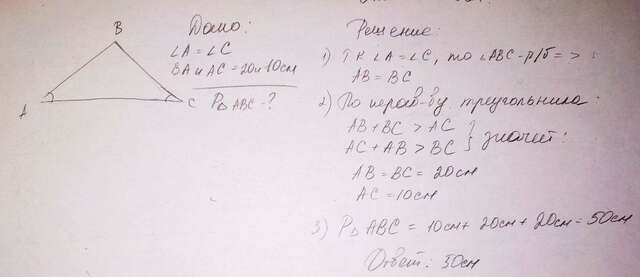 B
A
C
Дано:
∠A = ∠C
BA и AC = 20 и 10см
P△ABC - ?
Решение:
1) Т.К ∠A = ∠C, то △ABC - р/б = >
AB = BC
2) По нерав-ву треугольника:
AB + BC > AC
AC + AB > BC } значит:
AB = BC = 20см
AC = 10см
3) P△ABC = 10см + 20см + 20см = 50см
Ответ: 50см